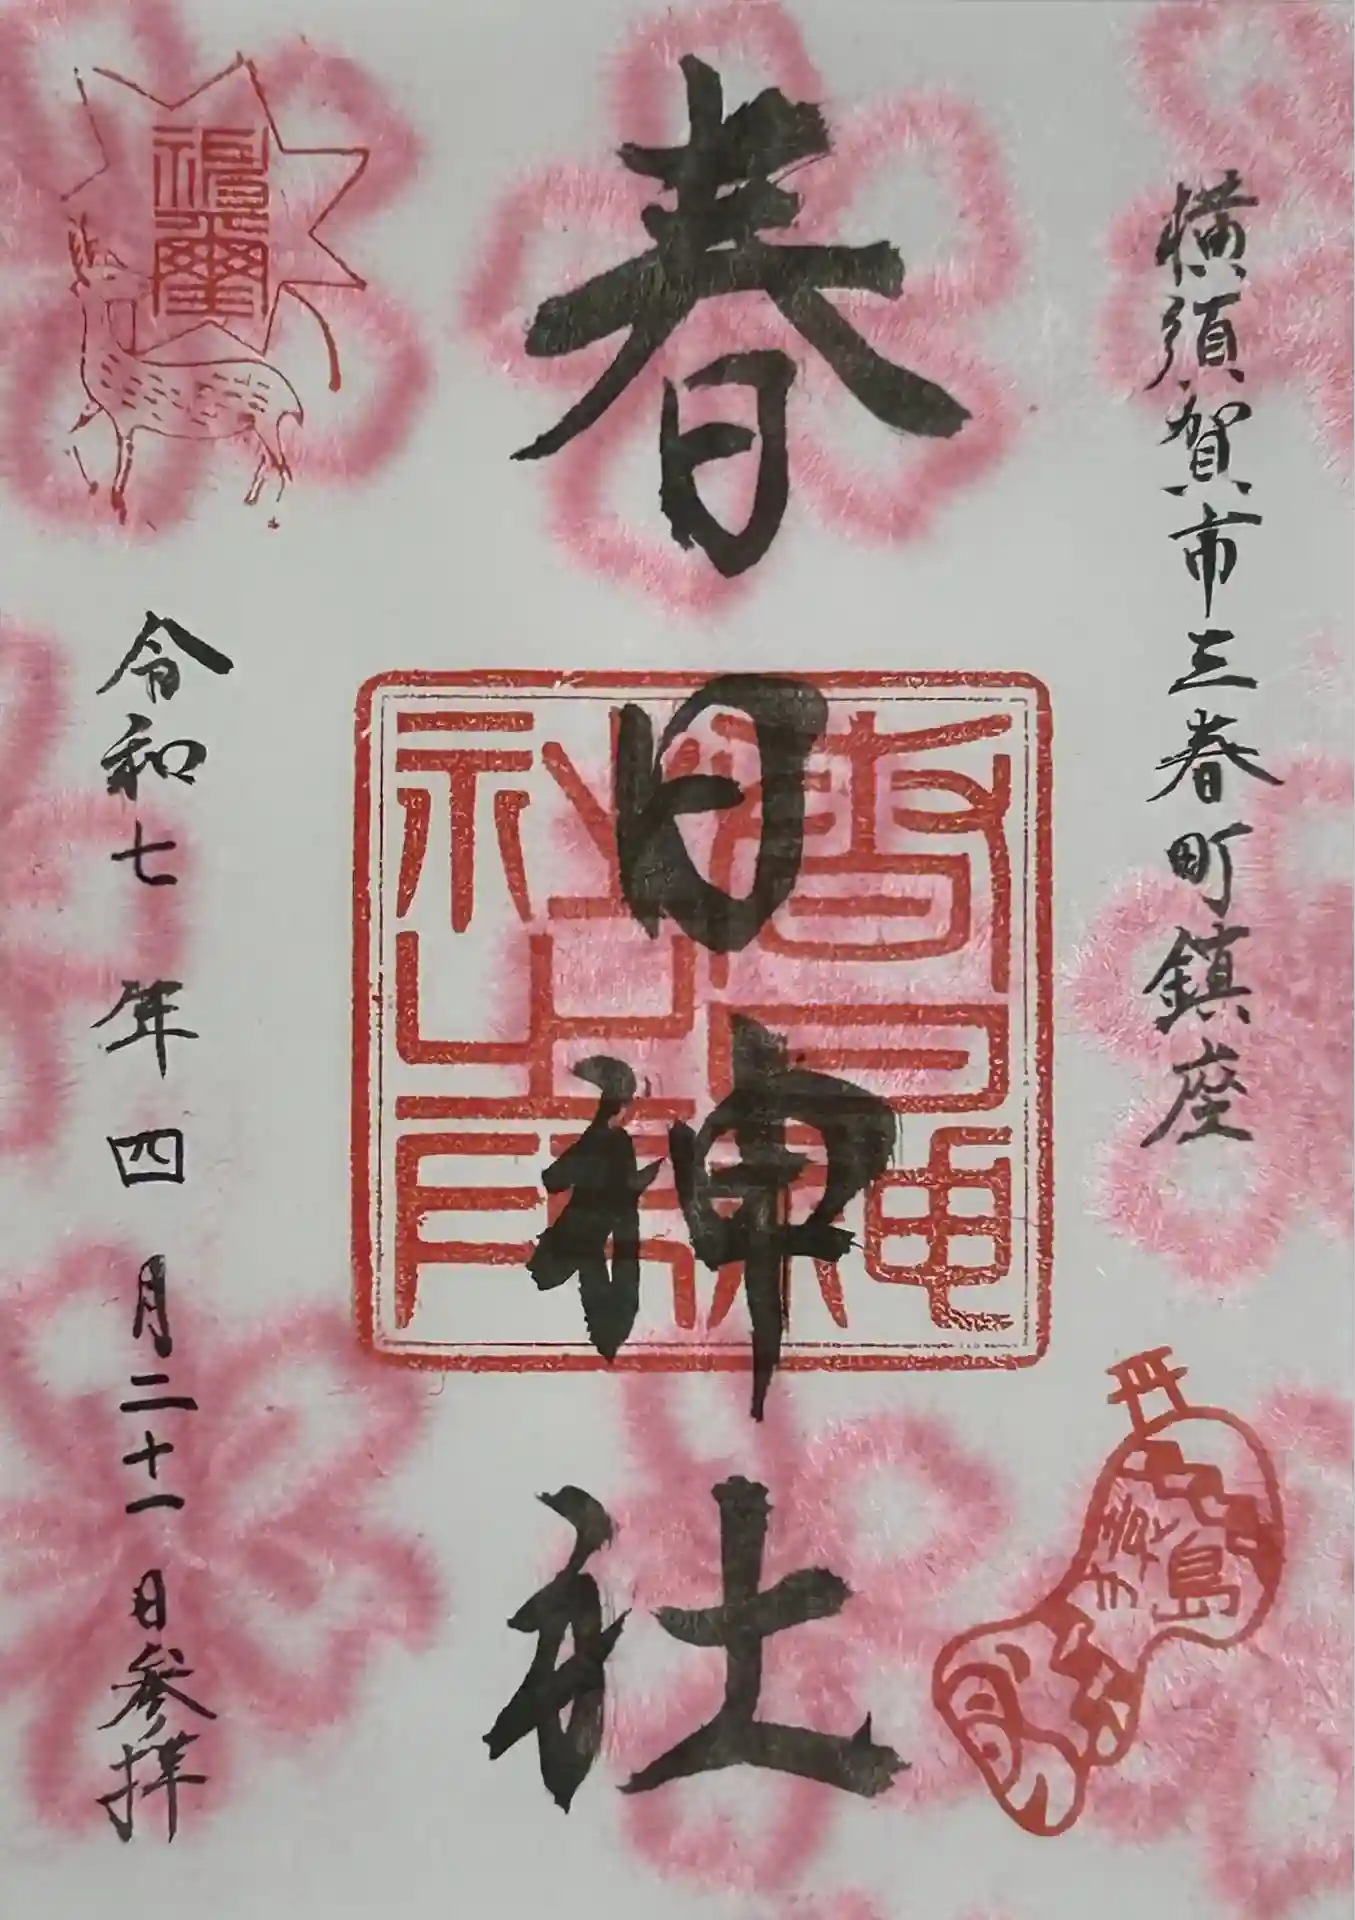 横須賀市三春町鎮座
春日神社
春日神社之印
猿島
令和七年四月二十一日参拝